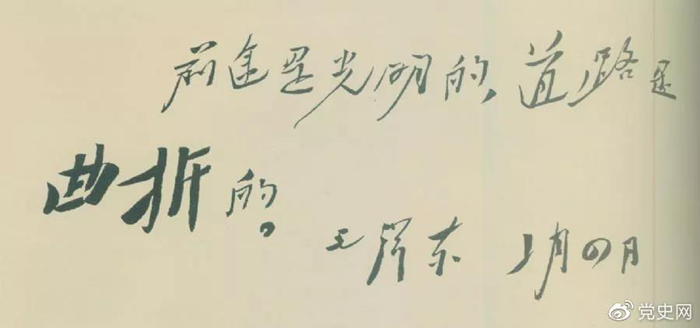 前途是光明的，道路是
曲折的。
毛泽东 1月4日
党史网